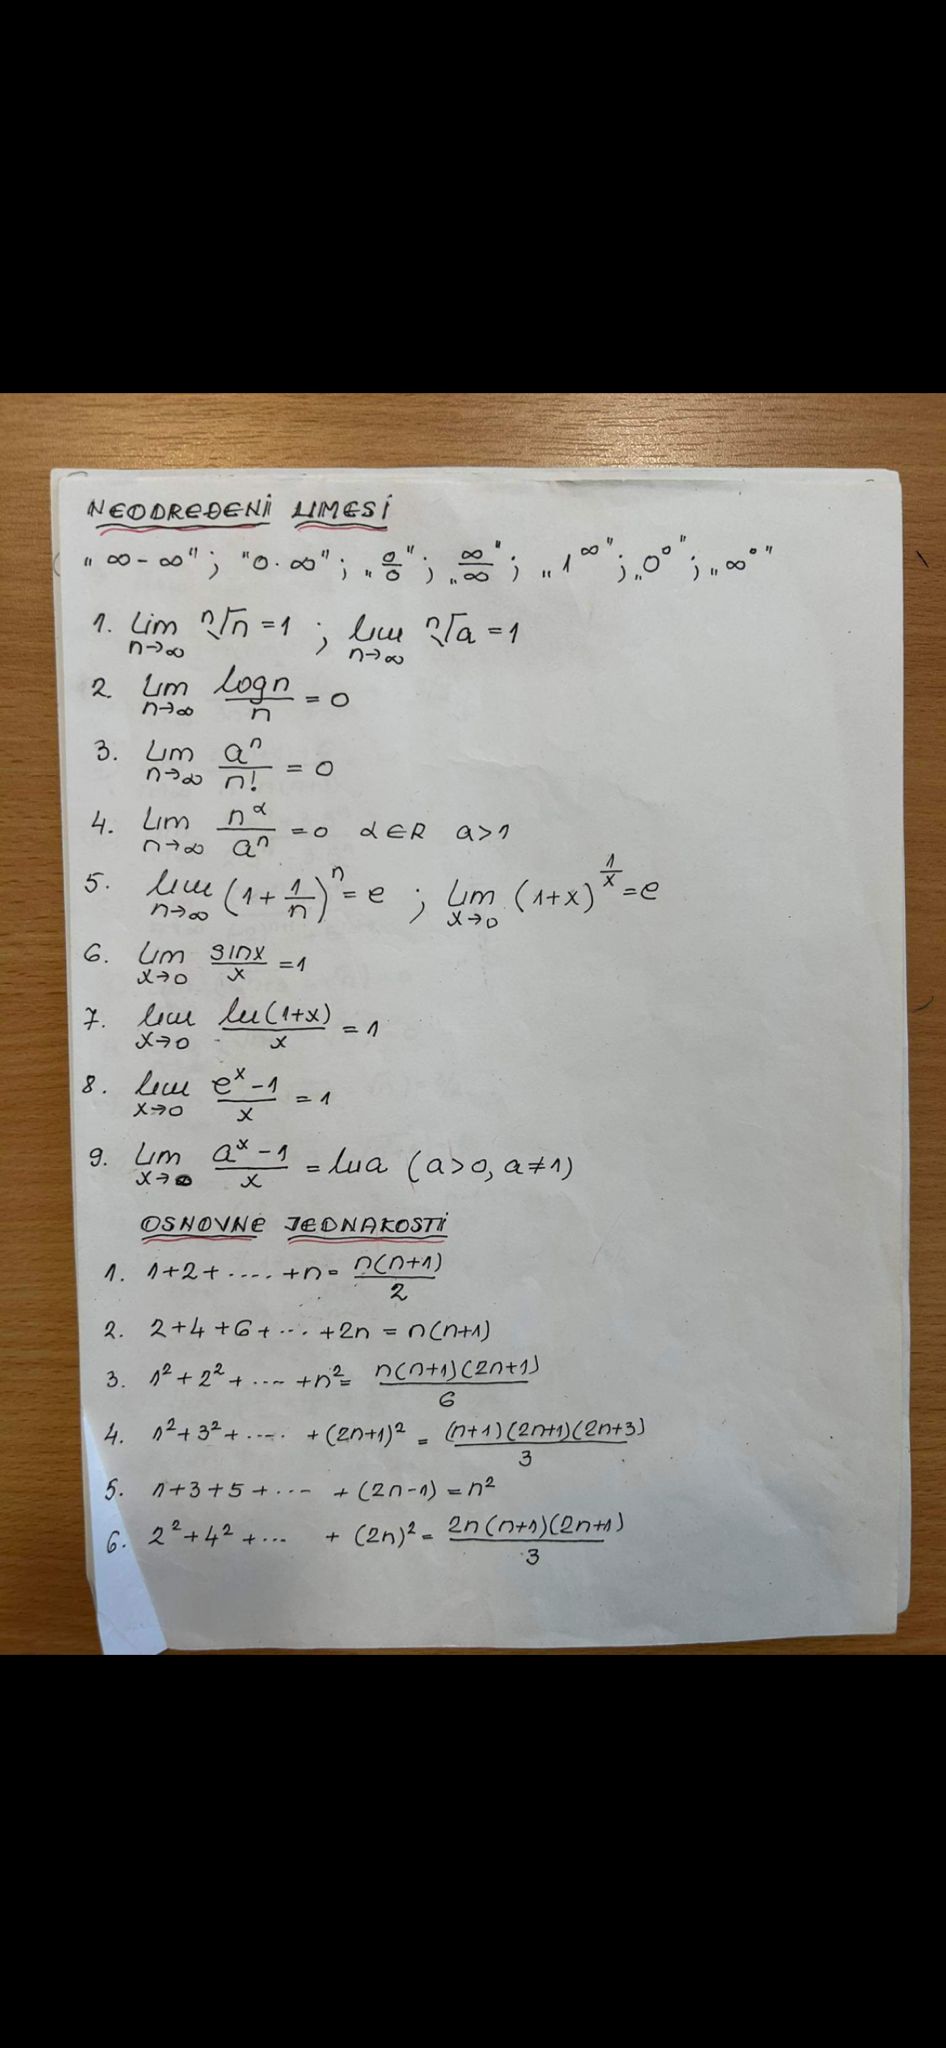 NEODREĐENI LIMESI
„∞-∞"; "0·∞"; „0/0"; „∞/∞"; „1^∞"; „0^0"; „∞^0"
1. lim n→∞ ⁿ√n = 1 ; lim n→∞ ⁿ√a = 1
2. lim n→∞ log n / n = 0
3. lim n→∞ a^n / n! = 0
4. lim n→∞ n^α / a^n = 0 α ∈ R a > 1
5. lim n→∞ (1 + 1/n)^n = e ; lim x→0 (1+x)^(1/x) = e
6. lim x→0 sin x / x = 1
7. lim x→0 ln(1+x) / x = 1
8. lim x→0 (e^x - 1) / x = 1
9. lim x→0 (a^x - 1) / x = ln a (a>0, a≠1)
OSNOVNE JEDNAKOSTI
1. 1+2+.....+n = n(n+1) / 2
2. 2+4+6+...+2n = n(n+1)
3. 1²+2²+....+n² = n(n+1)(2n+1) / 6
4. 1²+3²+.....+(2n+1)² = (n+1)(2n+1)(2n+3) / 3
5. 1+3+5+....+(2n-1) = n²
6. 2²+4²+...+(2n)² = 2n(n+1)(2n+1) / 3